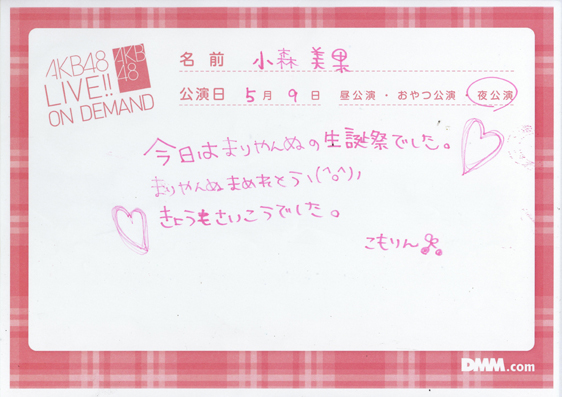 AKB48
LIVE!!
ON DEMAND
AKB
48
名前 小森美果
公演日 5月9日 昼公演・おやつ公演・夜公演
今日はまりやんぬの生誕祭でした。
まりやんぬまめれとうヽ(^o^)ノ
きょうもさいこうでした。
こもりん
DMM.com